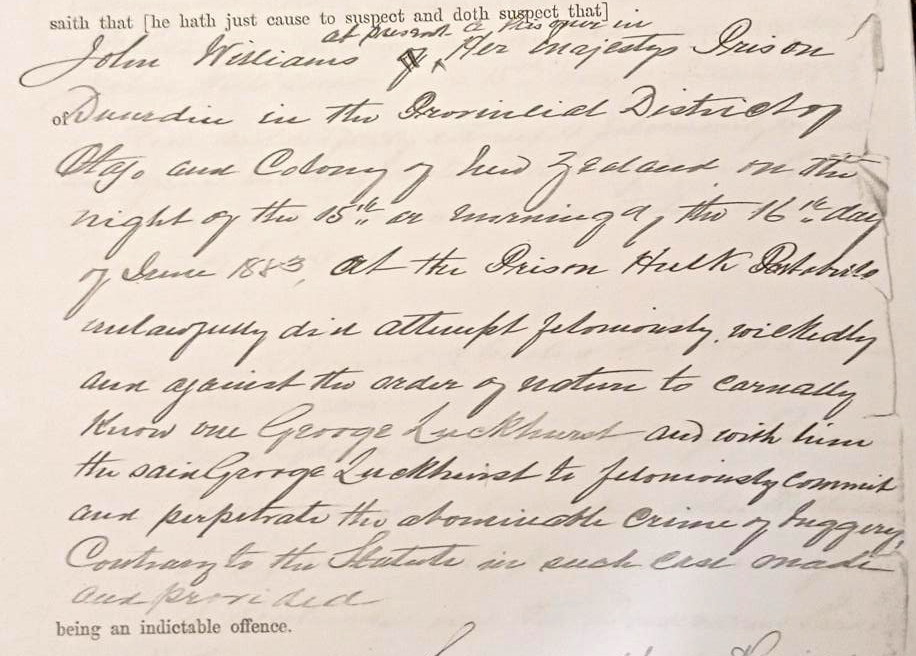 saith that [he hath just cause to suspect and doth suspect that]
at present a prisoner in
John Williams Her Majestys Prison
of Dunedin in the Provincial District of
Otago and Colony of New Zealand on the
night of the 15th or morning of the 16th day
of June 1883, at the Prison Hulk Portobello
unlawfully did attempt feloniously, wickedly
and against the order of nature to carnally
Know one George Luckhurst and with him
the said George Luckhurst to feloniously commit
and perpetrate the abominable crime of buggery,
Contrary to the Statute in such case made
and provided
being an indictable offence.